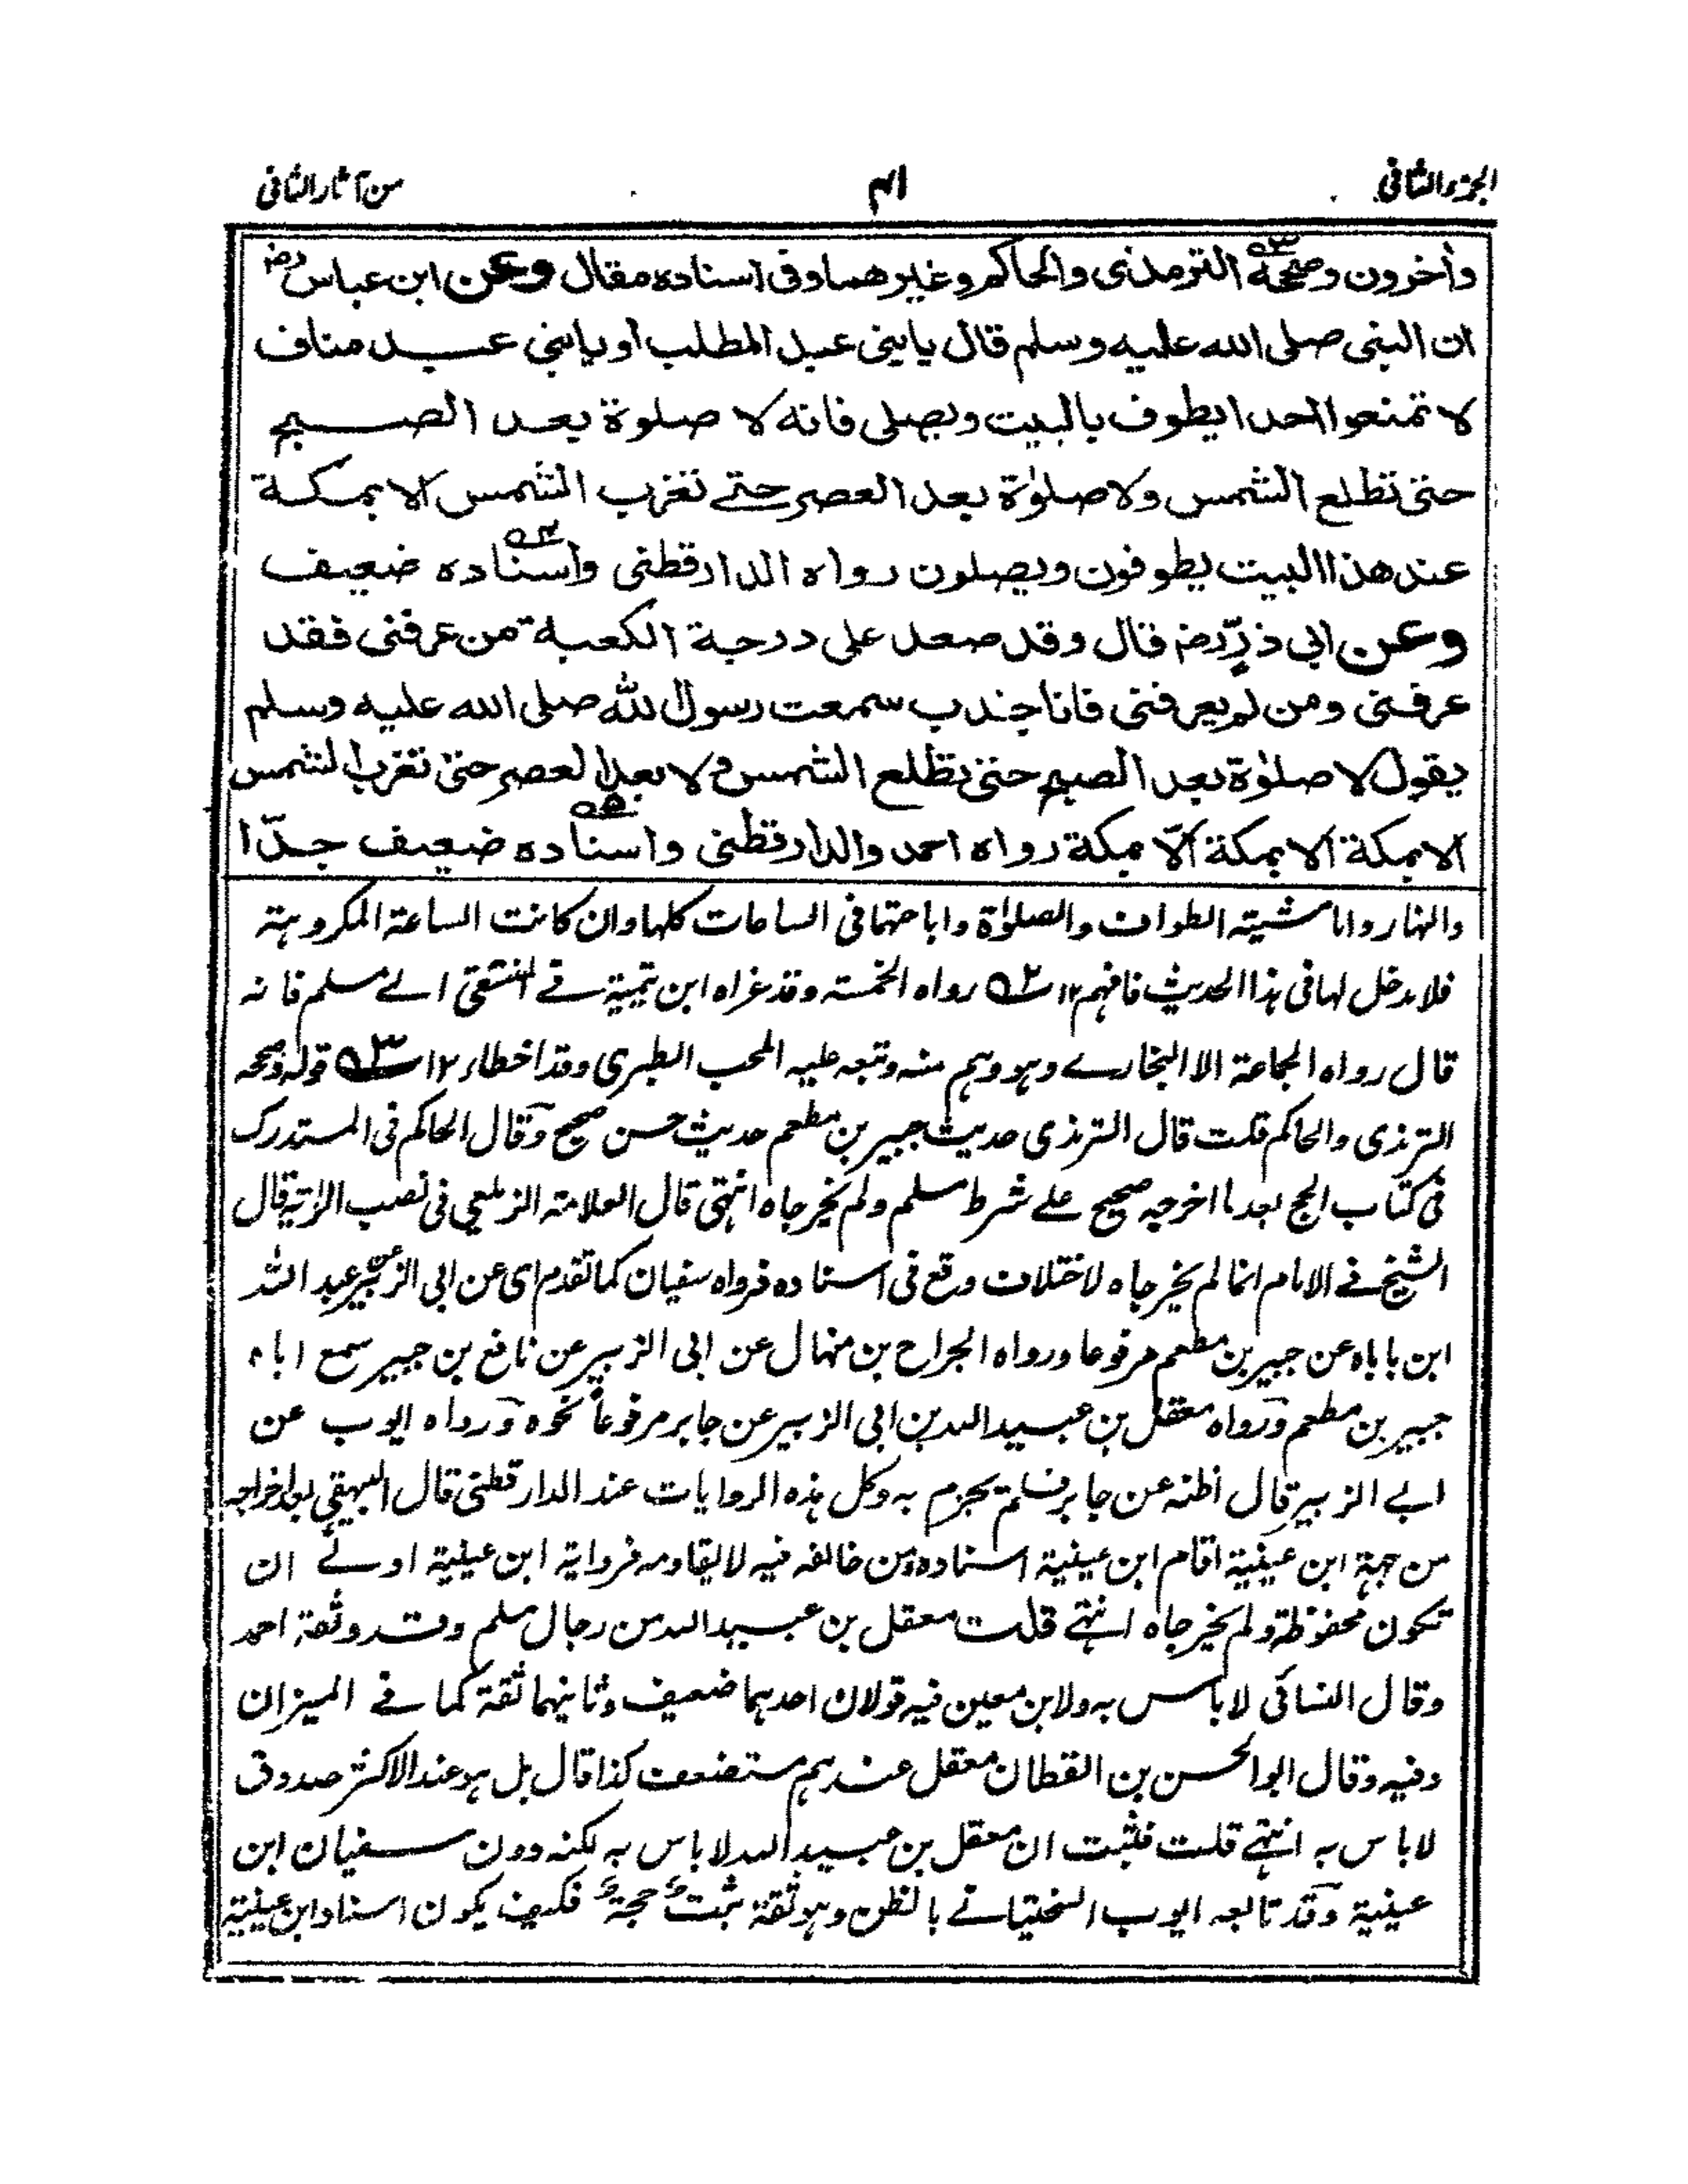 الجزء الثانى ٤١ من آثار الثانى
وأخرون وصححه الترمذى والحاكم وغيرهما وفى اسناده مقال وعن ابن عباس رض
ان النبى صلى الله عليه وسلم قال يابنى عبد المطلب او يابنى عبد مناف
لا تمنعوا احدا يطوف بالبيت ويصلى فانه لا صلوة بعد الصبح
حتى تطلع الشمس ولا صلوٰة بعد العصر حتے تغرب الشمس الا بمكة
عند هذا البيت يطوفون ويصلون رواه الدارقطنى واسناده ضعيف
وعن ابى ذرّ رض قال وقد صعد على درجة الكعبة من عرفنى فقد
عرفنى ومن لم يعرفنى فانا جندب سمعت رسول الله صلى الله عليه وسلم
يقول لا صلوٰة بعد الصبح حتى تطلع الشمس ولا بعد العصر حتى تغرب الشمس
الا بمكة الا بمكة الّا بمكة رواه احمد والدارقطنى واسناده ضعيف جدّا
والنهار وانا مشيته الطواف والصلوٰة واباحتها فى الساعات كلها وان كانت الساعة المكروهة
فلا مدخل لها فى هذا الحديث فافهم ١٢ ٥٢ رواه الخمسة وقد عزاه ابن تيمية فے المنتقى الے مسلم فانه
قال رواه الجماعة الا البخارے وهو وهم منه وتبعه عليه المحب الطبرى وقد اخطاء ١٢ ٥٣ قوله وصححه
الترمذى والحاكم قلت قال الترمذى حديث جبير بن مطعم حديث حسن صحيح وقال الحاكم فى المستدرك
فى كتاب الحج بعد ما اخرجه صحيح علے شرط مسلم ولم يخرجاه انتهى قال العلامة الزيلعي فى نصب الراية قال
الشيخ فے الامام انما لم يخرجاه لاختلاف وقع فى اسناده فرواه سفيان كما تقدم اى عن ابى الزبير عن عبد الله
ابن باباه عن جبير بن مطعم مرفوعا ورواه الجراح بن منهال عن ابى الزبير عن نافع بن جبير سمع اباه
جبير بن مطعم ورواه معقل بن عبيد الله بن ابى الزبير عن جابر مرفوعاً نحوه ورواه ايوب عن
ابے الزبير قال اظنه عن جابر فلم يجزم به وكل هذه الروايات عند الدارقطنى قال البيهقى بعد اخراجه
من جهة ابن عيينة اقام ابن عيينة اسناده ومن خالفه فيه لا يقاومه فرواية ابن عيينة اولے ان
تكون محفوظة ولم يخرجاه انتهے قلت معقل بن عبيد الله من رجال مسلم وقد وثقه احمد
وقال النسائى لا باس به ولابن معين فيه قولان احدهما ضعيف وثانيهما ثقة كما فے الميزان
وفيه وقال ابو الحسن بن القطان معقل عندهم مستضعف كذا قال بل هو عند الاكثر صدوق
لا باس به انتهے قلت فثبت ان معقل بن عبيد الله لا باس به لكنه دون سفيان ابن
عيينة وقد تابعه ايوب السختيانے بالظن وهو ثقة ثبت حجة فكيف يكون اسناد ابن عيينة